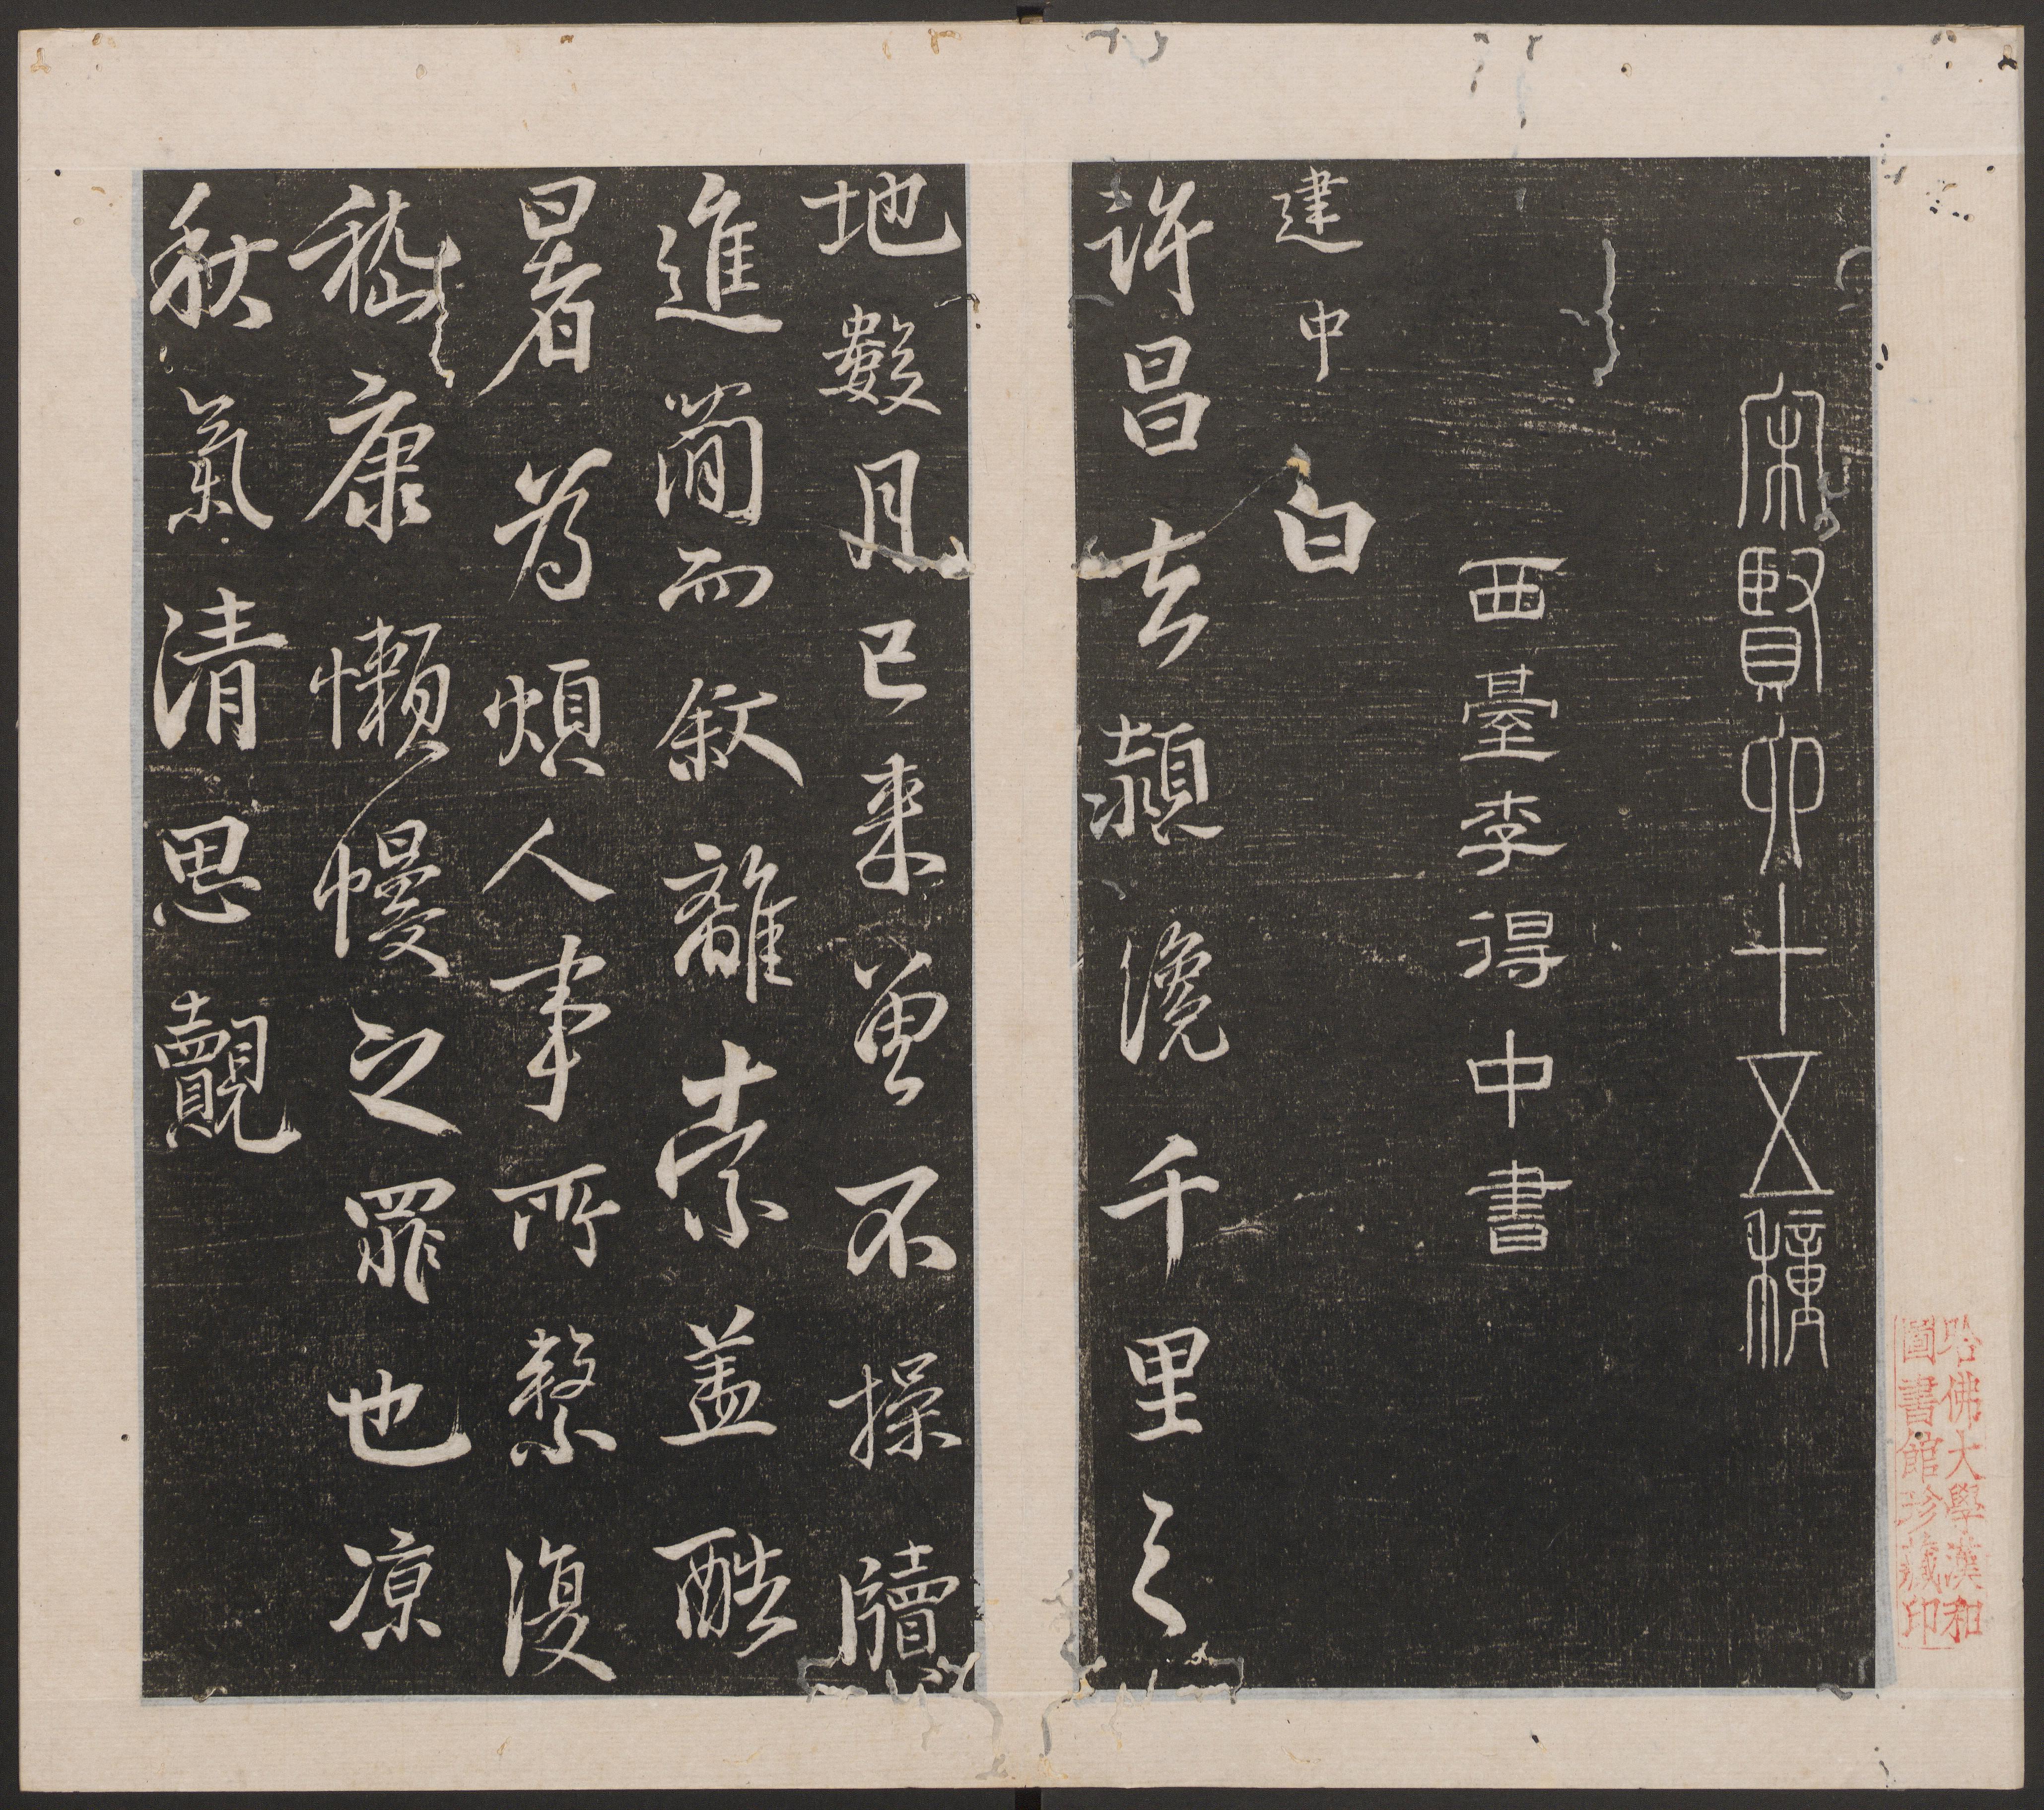 宋賢六十五種
西臺李得中書
建中白
許昌去潁遠千里之
地數月已來曾不操牘
進簡而敘離索蓋酷
暑為煩人事所繫復
嵇康懶慢之罪也凉
秋氣清思覿
哈佛大學漢和
圖書館珍藏印